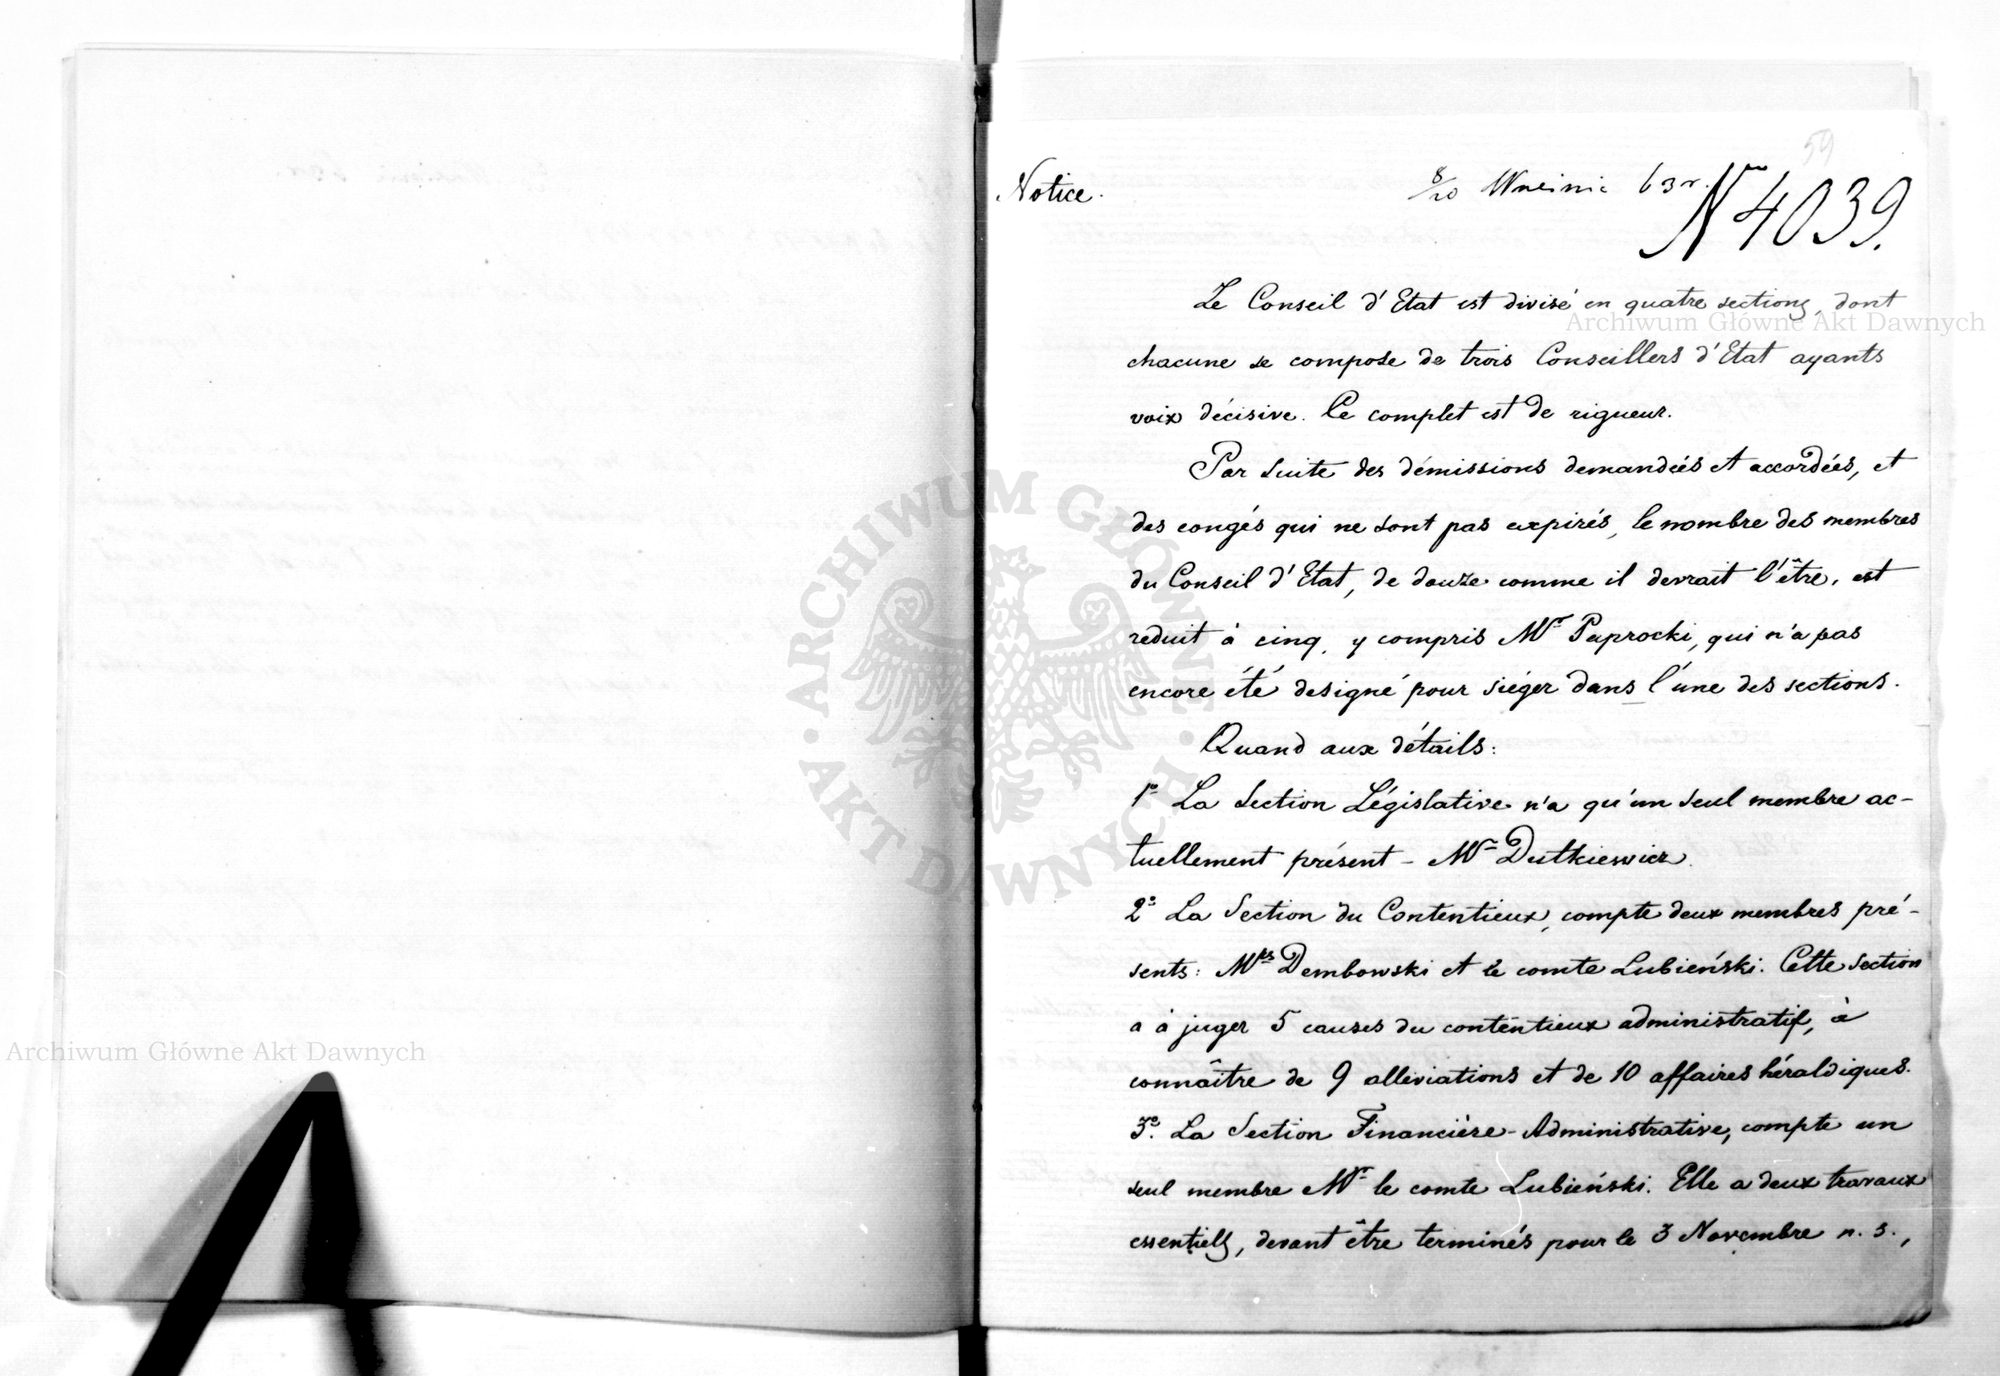 59
Notice.
8/20 Wrześnie 63 r.
N 4039.
Le Conseil d'Etat est divisé en quatre sections, dont
chacune se compose de trois Conseillers d'Etat ayants
voix décisive. Ce complet est de rigueur.
Par suite des démissions demandées et accordées, et
des congés qui ne sont pas expirés, le nombre des membres
du Conseil d'Etat, de douze comme il devrait l'être, est
reduit à cinq, y compris Mr Paprocki, qui n'a pas
encore été designé pour siéger dans l'une des sections.
Quand aux détails:
1º La Section Législative n'a qu'un seul membre ac-
tuellement présent - Mr Dutkiewicz.
2º La Section du Contentieux, compte deux membres pré-
sents: Mrs Dembowski et le comte Lubieński. Cette section
a à juger 5 causes du contentieux administratif, à
connaître de 9 alleviations et de 10 affaires héraldiques.
3º. La Section Financière-Administrative, compte un
seul membre Mr le comte Lubieński. Elle a deux travaux
essentiels, devant être terminés pour le 3 Novembre n. s.,
Archiwum Główne Akt Dawnych
Archiwum Główne Akt Dawnych
ARCHIWUM GŁÓWNE · AKT DAWNYCH ·